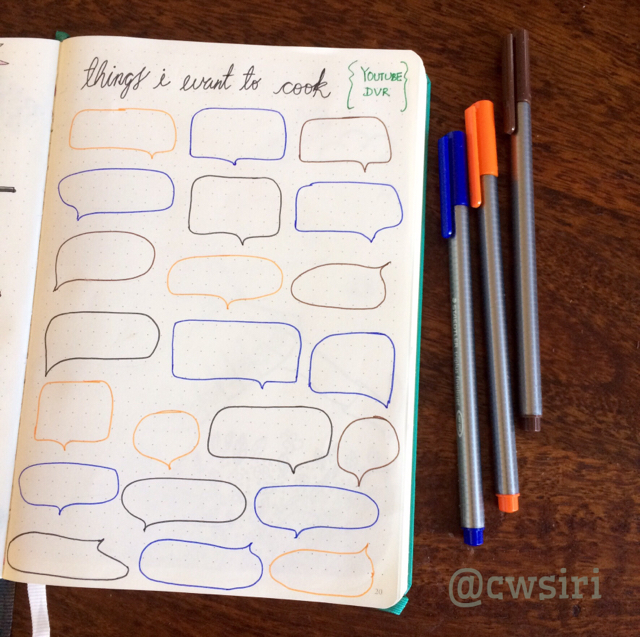 things i want to cook
{YOUTUBE
DVR}
@cwsiri